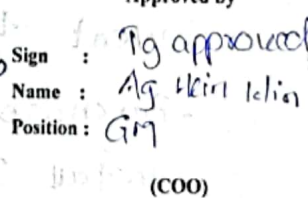 Approved by
Sign : Tg approved
Name : Ag
Position : GM
(COO)